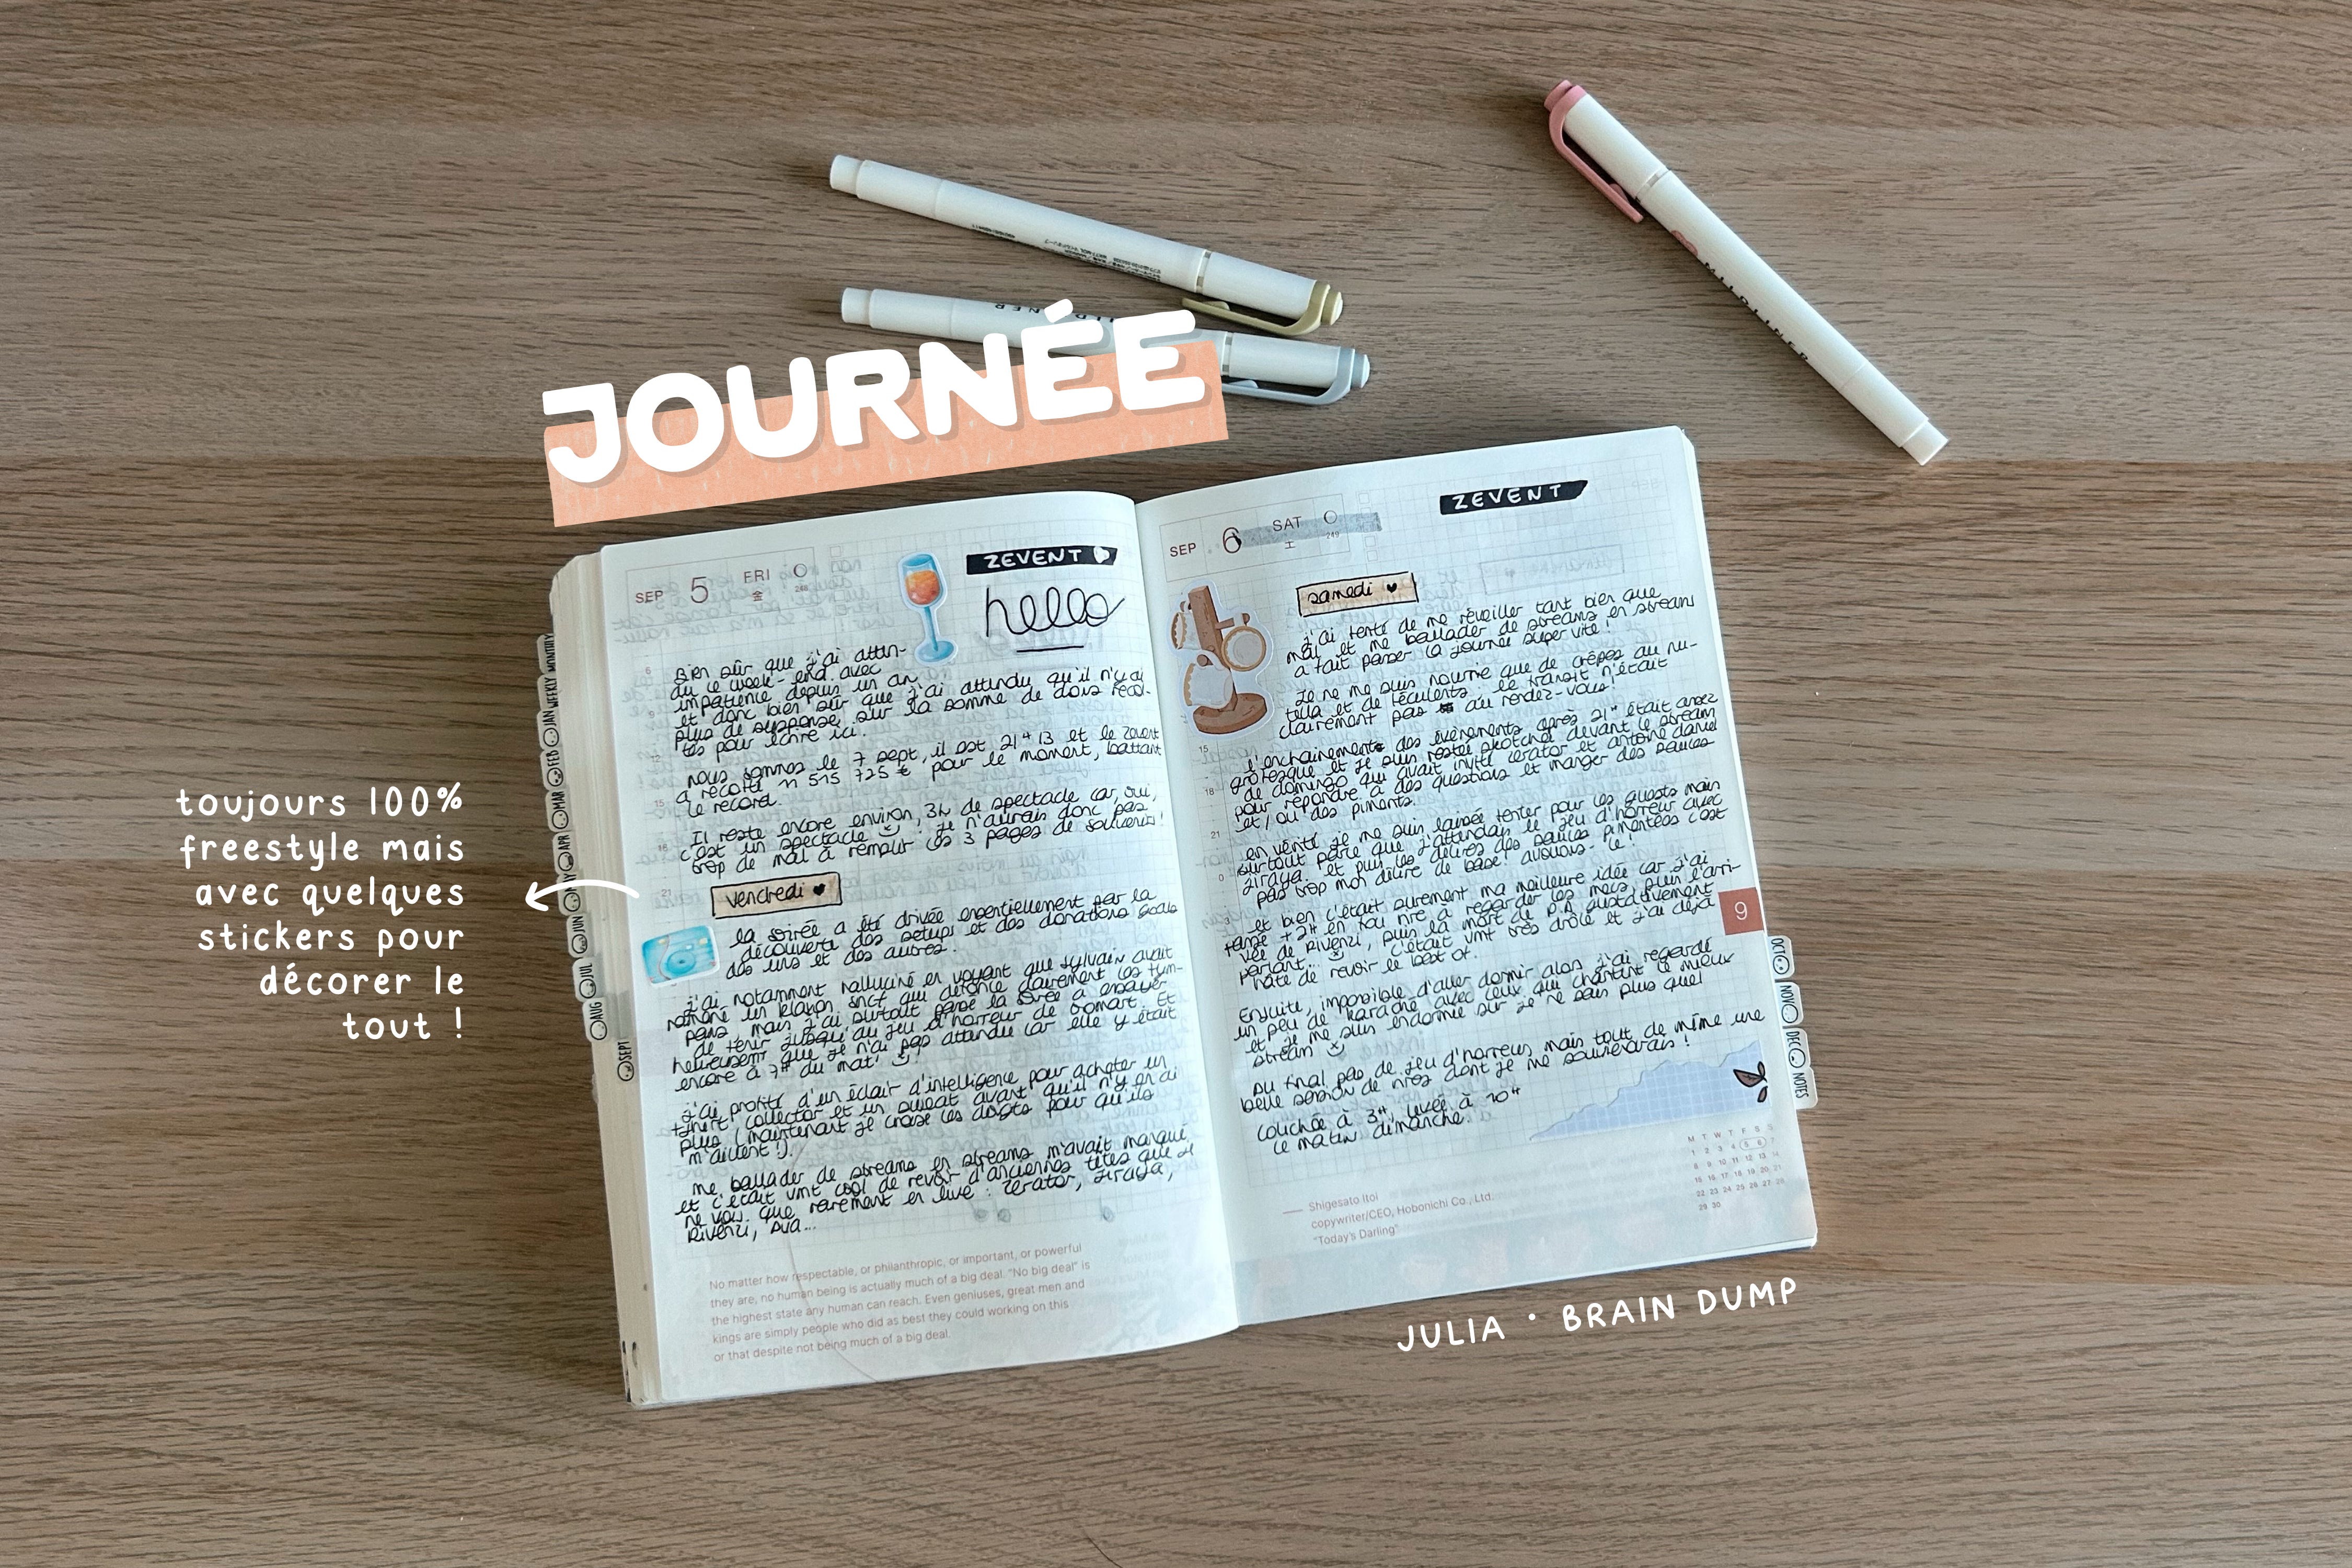 JOURNÉE
toujours 100%
freestyle mais
avec quelques
stickers pour
décorer le
tout !
SEP 5 FRI
金
248
ZEVENT
hello
Bien sûr que j'ai atten-
du ce week-end avec
impatience depuis un an
et donc bien sûr que j'ai attendu qu'il n'y ai
plus de suspense sur la somme de dons récol-
tés pour écrire ici.
nous sommes le 7 sept, il est 21H13 et le zevent
a récolté 11 515 725 € pour le moment, battant
le record.
Il reste encore environ 3h de spectacle car, oui,
c'est un spectacle ! Je n'aurais donc pas
trop de mal à remplir ces 3 pages de souvenirs !
vendredi
la soirée a été drivée essentiellement par la
découverte des setups et des donations goals
des uns et des autres.
j'ai notamment halluciné en voyant que sylvain avait
ramené un klaxon sncf qui défonce clairement les tym-
pans, mais j'ai surtout passé la soirée à essayer
de tenir jusqu'au jeu d'horreur de bomart. Et
heureusemt que je n'ai pas attendu car elle y était
encore à 7H du mat' !
j'ai profité d'un éclair d'intelligence pour acheter un
tshirt collector et un sweat avant qu'il n'y en ai
plus (maintenant je croise les doigts pour qu'ils
m'aillent !).
me ballader de streams en streams m'avait manqué
et c'était vmt cool de revoir d'anciennes têtes que je
ne vois que rarement en live : Zerator, Jiraya,
Rivenzi, Ava...
No matter how respectable, or philanthropic, or important, or powerful
they are, no human being is actually much of a big deal. "No big deal" is
the highest state any human can reach. Even geniuses, great men and
kings are simply people who did as best they could working on this
or that despite not being much of a big deal.
SEP 6 SAT
土
249
ZEVENT
samedi
j'ai tenté de me réveiller tant bien que
mal et me ballader de streams en streams
a fait passer la journée super vite !
Je ne me suis nourrie que de crêpes au nu-
tella et de féculents. le transit n'était
clairement pas au rendez-vous !
l'enchainement des évènements après 21H était assez
grotesque et je suis restée skotchée devant le stream
de domingo qui avait invité zerator et antoine daniel
pour répondre à des questions et manger des sauces
et/ou des piments.
en vérité je me suis laissée tenter pour les guests mais
surtout parce que j'attendais le jeu d'horreur avec
jiraya. et puis les délires des sauces pimentées c'est
pas trop mon délire de base! avouons-le !
et bien c'était surement ma meilleure idée car j'ai
passé +2H en fou rire à regarder les mecs, puis l'arri-
vée de Rivenzi, puis la mort de P.A gustativement
parlant... c'était vmt très drôle et j'ai déjà
hâte de revoir le best of.
Ensuite, impossible d'aller dormir alors j'ai regardé
un peu de karaoké avec ceux qui chantent le mieux
et je me suis endormie sur je ne sais plus quel
stream
Au final pas de jeu d'horreur mais tout de même une
belle session de rires dont je me souviendrais !
couchée à 3H, levée à 10H
le matin dimanche.
Shigesato Itoi
copywriter/CEO, Hobonichi Co., Ltd.
"Today's Darling"
M T W T F S S
1 2 3 4 5 6 7
8 9 10 11 12 13 14
15 16 17 18 19 20 21
22 23 24 25 26 27 28
29 30
9
MONTHLY
WEEKLY
JAN
FEB
MAR
APR
JUN
JUL
AUG
SEPT
OCT
NOV
DEC
NOTES
MILDLINER
JULIA • BRAIN DUMP